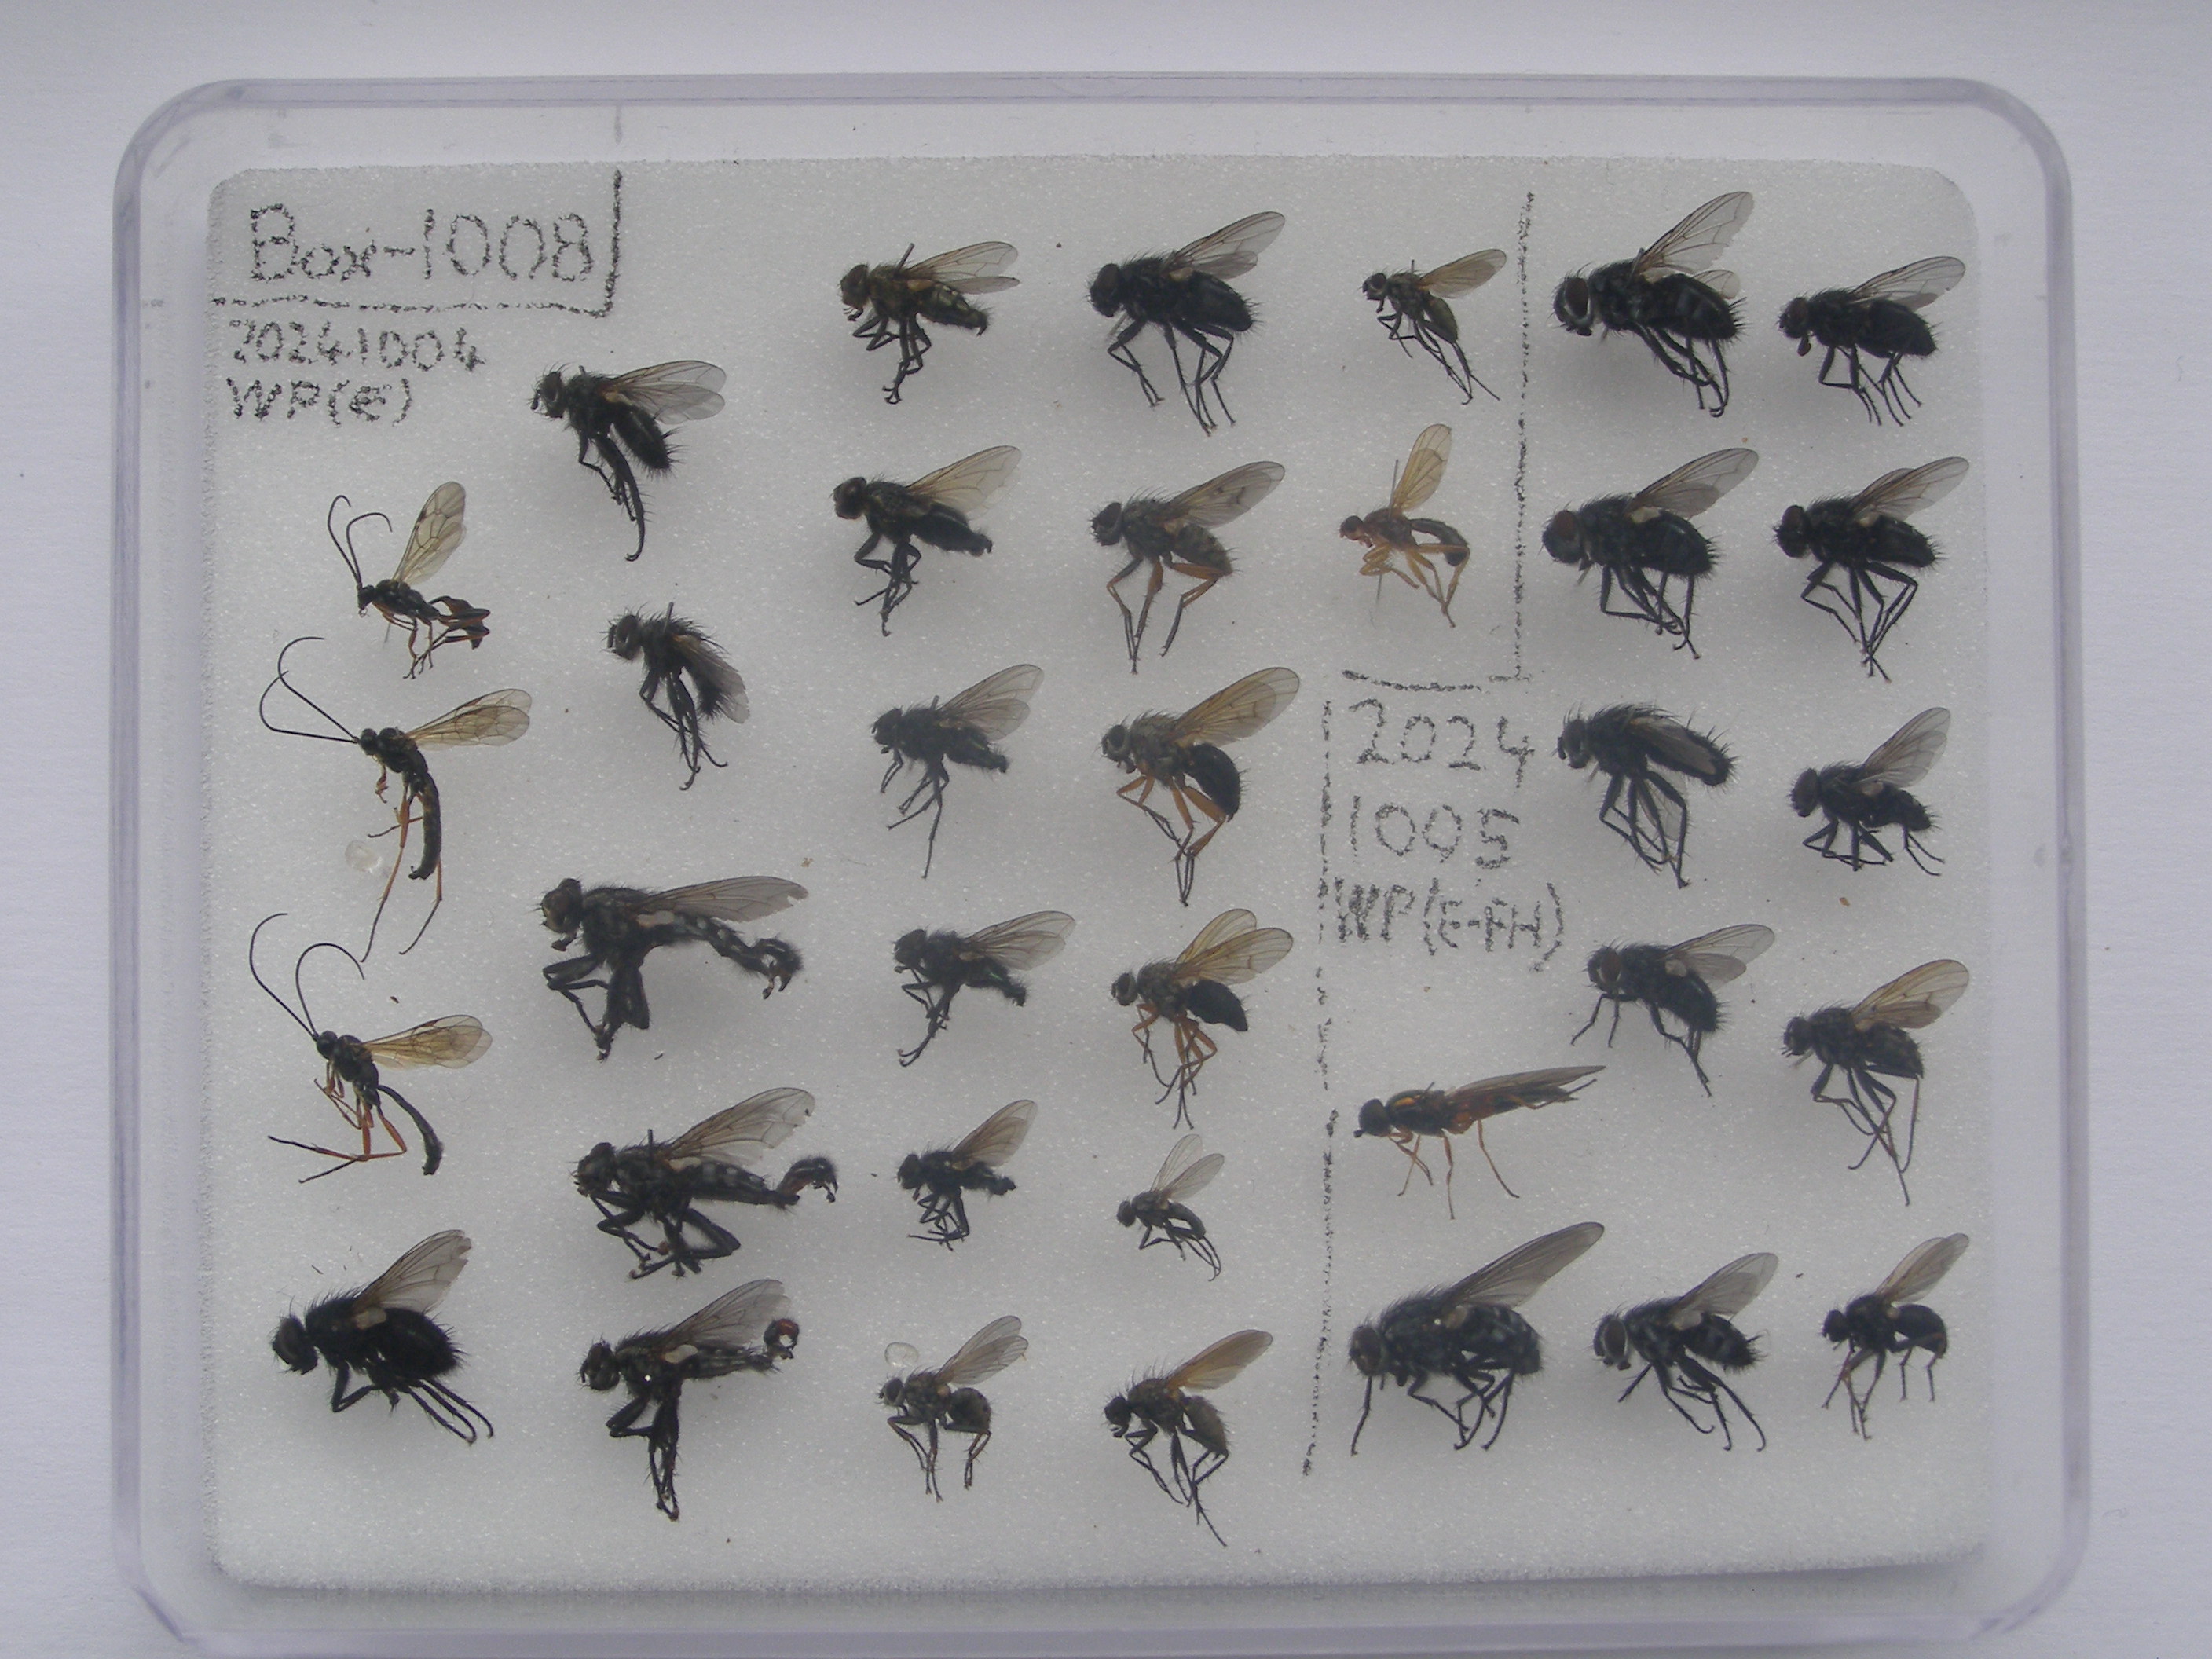 Box-1008
20241004
WP(E)
2024
1005
WP(E-FH)